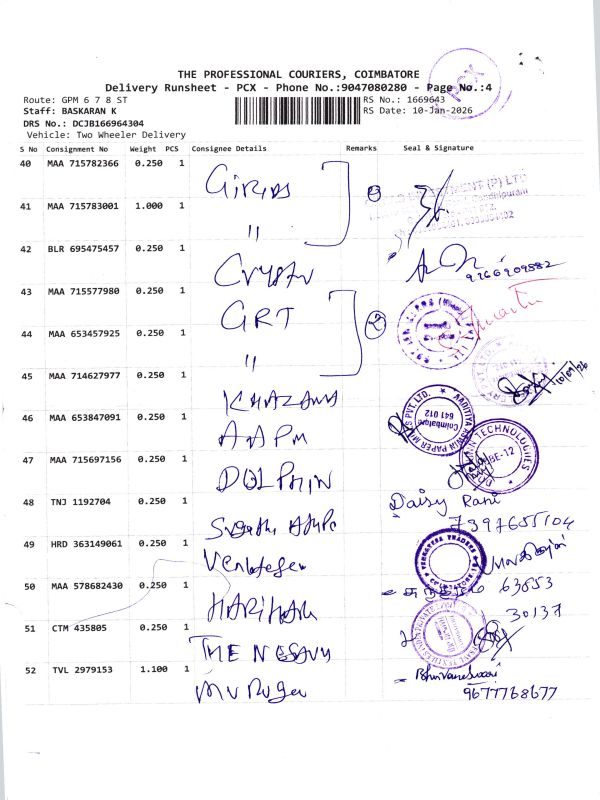 THE PROFESSIONAL COURIERS, COIMBATORE
Delivery Runsheet - PCX - Phone No.:9047080280 - Page No.:4
PCX
Route: GPM 6 7 8 ST
RS No.: 1669643
Staff: BASKARAN K
RS Date: 10-Jan-2026
DRS No.: DCJB166964304
Vehicle: Two Wheeler Delivery
S No Consignment No Weight PCS Consignee Details Remarks Seal & Signature
40 MAA 715782366 0.250 1
41 MAA 715783001 1.000 1 "
42 BLR 695475457 0.250 1 Crystal
43 MAA 715577980 0.250 1 GRT
44 MAA 653457925 0.250 1 "
45 MAA 714627977 0.250 1 KHAZANA
46 MAA 653847091 0.250 1 AAPM
AADITIYA ASWIN PAPER MILLS PVT. LTD.
Coimbatore
641 012
47 MAA 715697156 0.250 1 DOLPHIN
TECHNOLOGIES
CBE-12
48 TNJ 1192704 0.250 1
Daisy Rani
7397655104
49 HRD 363149061 0.250 1
VENKATESA TRADERS
50 MAA 578682430 0.250 1 HARIHARA
63853
30137
51 CTM 435805 0.250 1 THE
52 TVL 2979153 1.100 1
Bhuvaneswari
9677768677